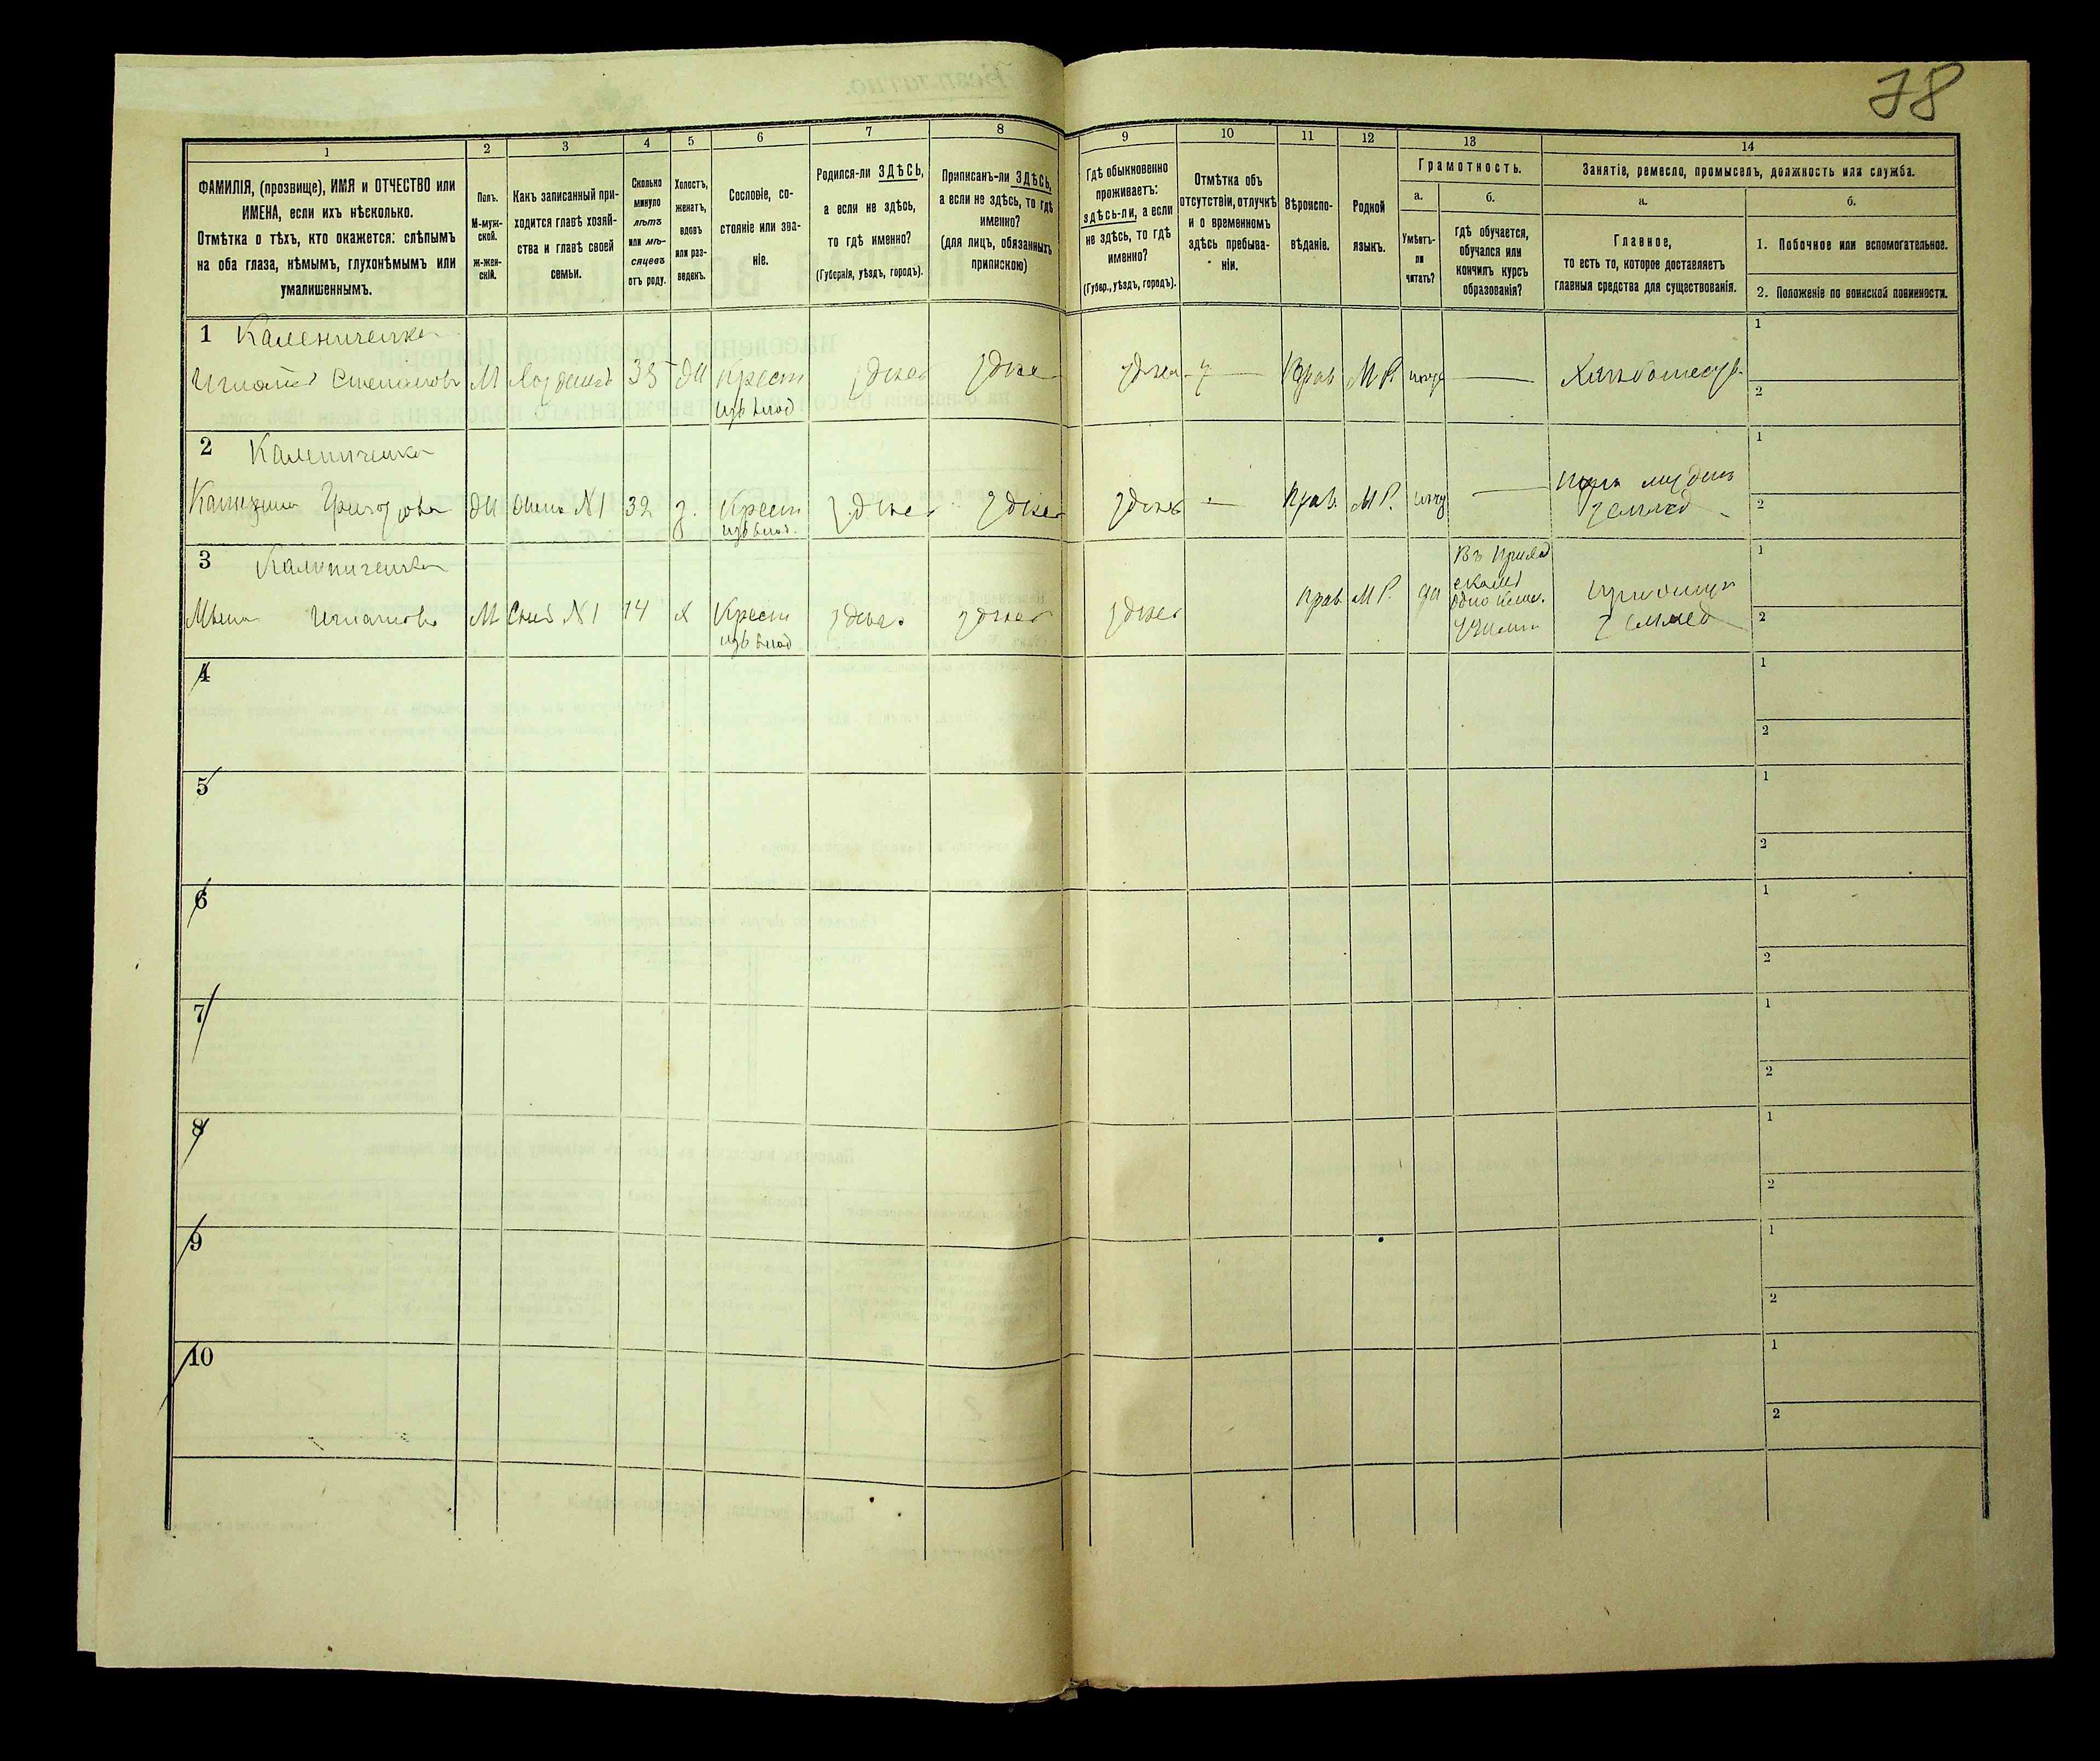 78
1
2
3
4
5
6
7
8
9
10
11
12
13
14
ФАМИЛІЯ, (прозвище), ИМЯ и ОТЧЕСТВО или
ИМЕНА, если ихъ нѣсколько.
Отмѣтка о тѣхъ, кто окажется: слѣпымъ
на оба глаза, нѣмымъ, глухонѣмымъ или
умалишеннымъ.
Полъ.
М-муж-
ской.
ж-жен-
скій.
Какъ записанный при-
ходится главѣ хозяй-
ства и главѣ своей
семьи.
Сколько
минуло
лѣтъ
или мѣ-
сяцевъ
отъ роду.
Холостъ,
женатъ,
вдовъ
или раз-
веденъ.
Сословіе, со-
стояніе или зва-
ніе.
Родился-ли ЗДѢСЬ,
а если не здѣсь,
то гдѣ именно?
(Губернія, уѣздъ, городъ).
Приписанъ-ли ЗДѢСЬ,
а если не здѣсь, то гдѣ
именно?
(для лицъ, обязанныхъ
припискою)
Гдѣ обыкновенно
проживаетъ:
здѣсь-ли, а если
не здѣсь, то гдѣ
именно?
(Губер., уѣздъ, городъ).
Отмѣтка объ
отсутствіи, отлучкѣ
и о временномъ
здѣсь пребыва-
ніи.
Вѣроиспо-
вѣданіе.
Родной
языкъ.
Грамотность.
а.
Умѣетъ-
ли
читать?
б.
гдѣ обучается,
обучался или
кончилъ курсъ
образованія?
Занятіе, ремесло, промыселъ, должность или служба.
а.
Главное,
то есть то, которое доставляетъ
главныя средства для существованія.
б.
1. Побочное или вспомогательное.
2. Положеніе по воинской повинности.
1 Калениченко
Игнатъ Степановъ М 35 Крест здѣсь здѣсь здѣсь Прав М Р.
изъ влад
1
2
2 Калениченко
Григорова жена №1 32 Крест здѣсь здѣсь здѣсь — Прав. М Р. —
изъ влад. землед
1
2
3 Калениченко
Игнатовъ М Сынъ №1 14 х Крест здѣсь здѣсь здѣсь прав М Р. да
изъ влад землед
1
2
4
1
2
5
1
2
6
1
2
7
1
2
8
1
2
9
1
2
10
1
2